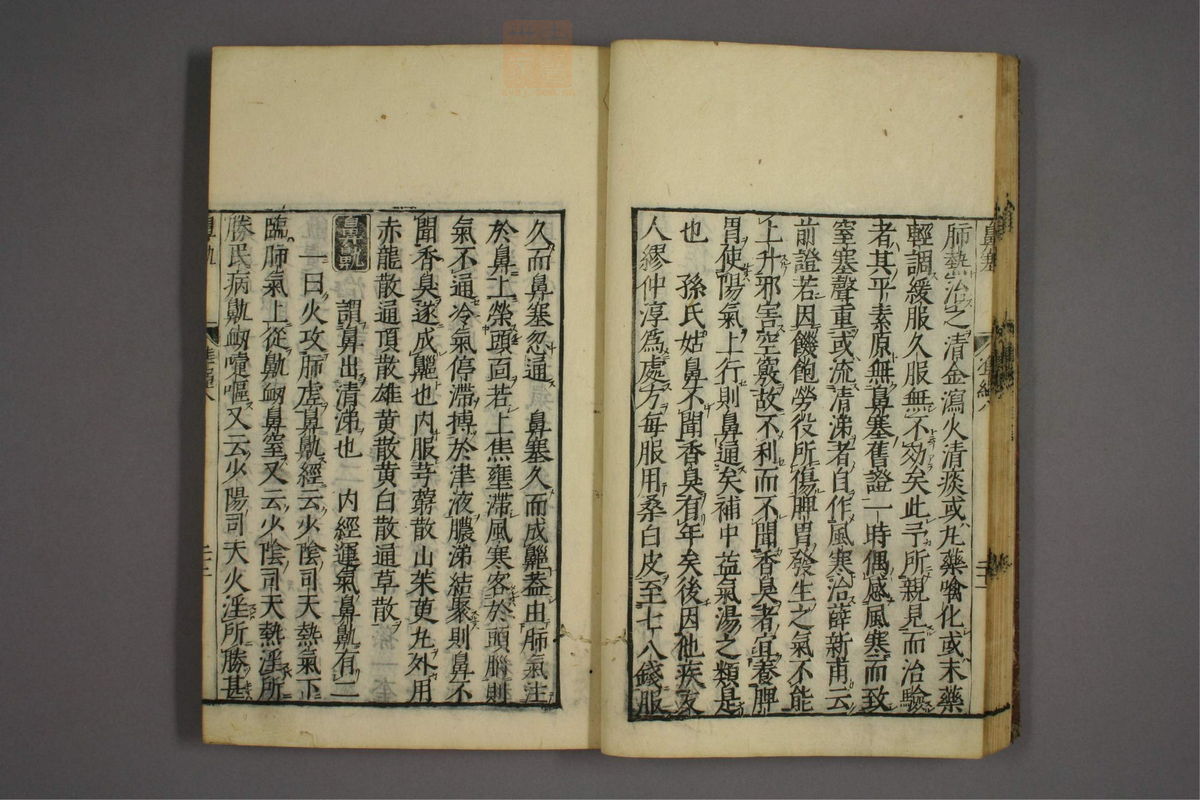 鼻塞
肺熱治之清金瀉火清痰或丸藥噙化或末藥
輕調緩服久服無不效矣此予所親見而治驗
者其平素原無鼻塞舊證一時偶感風寒而致
窒塞聲重或流清涕者自作風寒治薛新甫云
前證若因饑飽勞役所傷脾胃發生之氣不能
上升邪害空竅故不利而不聞香臭者宜養脾
胃使陽氣上行則鼻通矣補中益氣湯之類是
也　孫氏姑鼻不聞香臭有年矣後因他疾友
人繆仲淳爲處方每服用桑白皮至七八錢服
久而鼻塞忽通　鼻塞久而成齆蓋由肺氣注
於鼻上榮頭面若上焦壅滯風寒客於頭腦則
氣不通冷氣停滯搏於津液膿涕結聚則鼻不
聞香臭遂成齆也内服芎藭散山茱萸丸外用
赤龍散通頂散雄黄散黄白散通草散
鼻鼽　謂鼻出清涕也　内經運氣鼻鼽有二
一曰火攻肺虚鼻鼽經云少陰司天熱氣下
臨肺氣上從鼽衂鼻窒又云少陰司天熱淫所
勝民病鼽衂嚏嘔又云少陽司天火淫所勝甚
鼻鼽